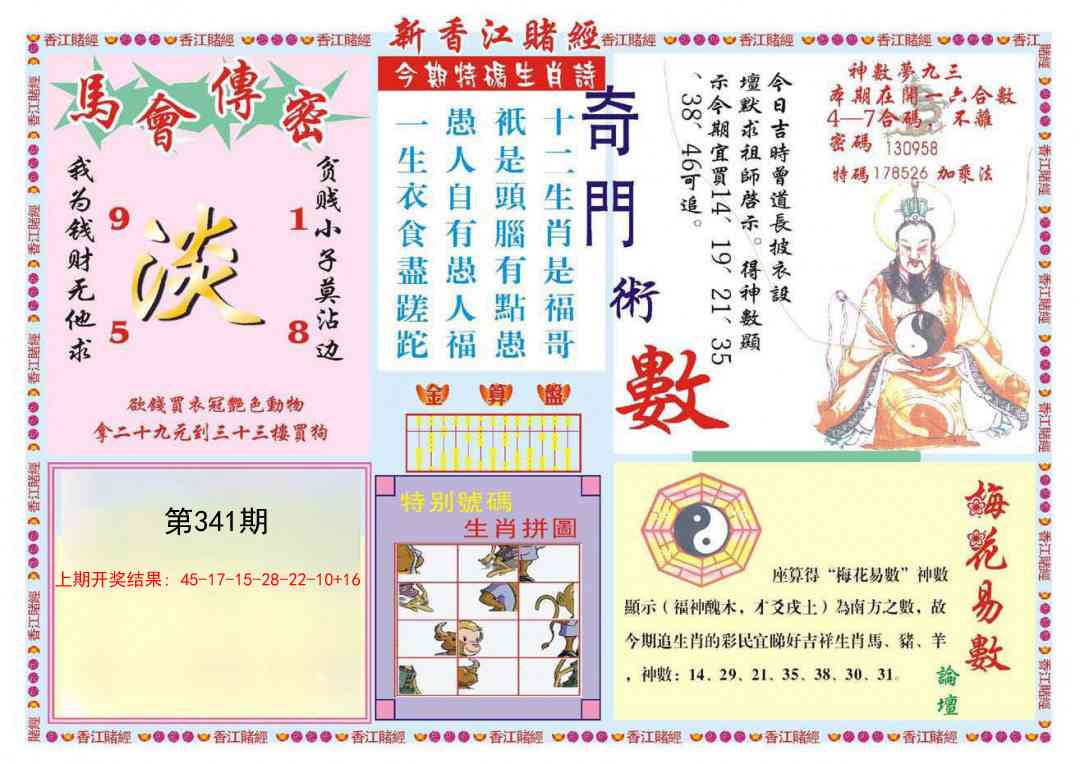 新香江賭經
香江賭經
馬會傳密
我为钱财无他求
9
5
淡
1
8
贫贱小子莫沾边
欲錢買衣冠艷色動物
拿二十九元到三十三樓買狗
今期特碼生肖詩
十二生肖是福哥
祇是頭腦有點愚
愚人自有愚人福
一生衣食盡蹉跎
奇門術數
今日吉時曾道長披衣設
壇默求祖師啓示。得神數顯
示今期宜買14、19、21、35
、38、46可追。
神數夢九三
本期在開一六合數
4—7合碼，不離
密碼 130958
特碼178526 加乘法
金算盤
第341期
上期开奖结果：45-17-15-28-22-10+16
特别號碼
生肖拼圖
梅花易數
論壇
座算得“梅花易數”神數
顯示（福神醜木，才爻戌土）為南方之數，故
今期追生肖的彩民宜睇好吉祥生肖馬、豬、羊
，神數：14、29、21、35、38、30、31。